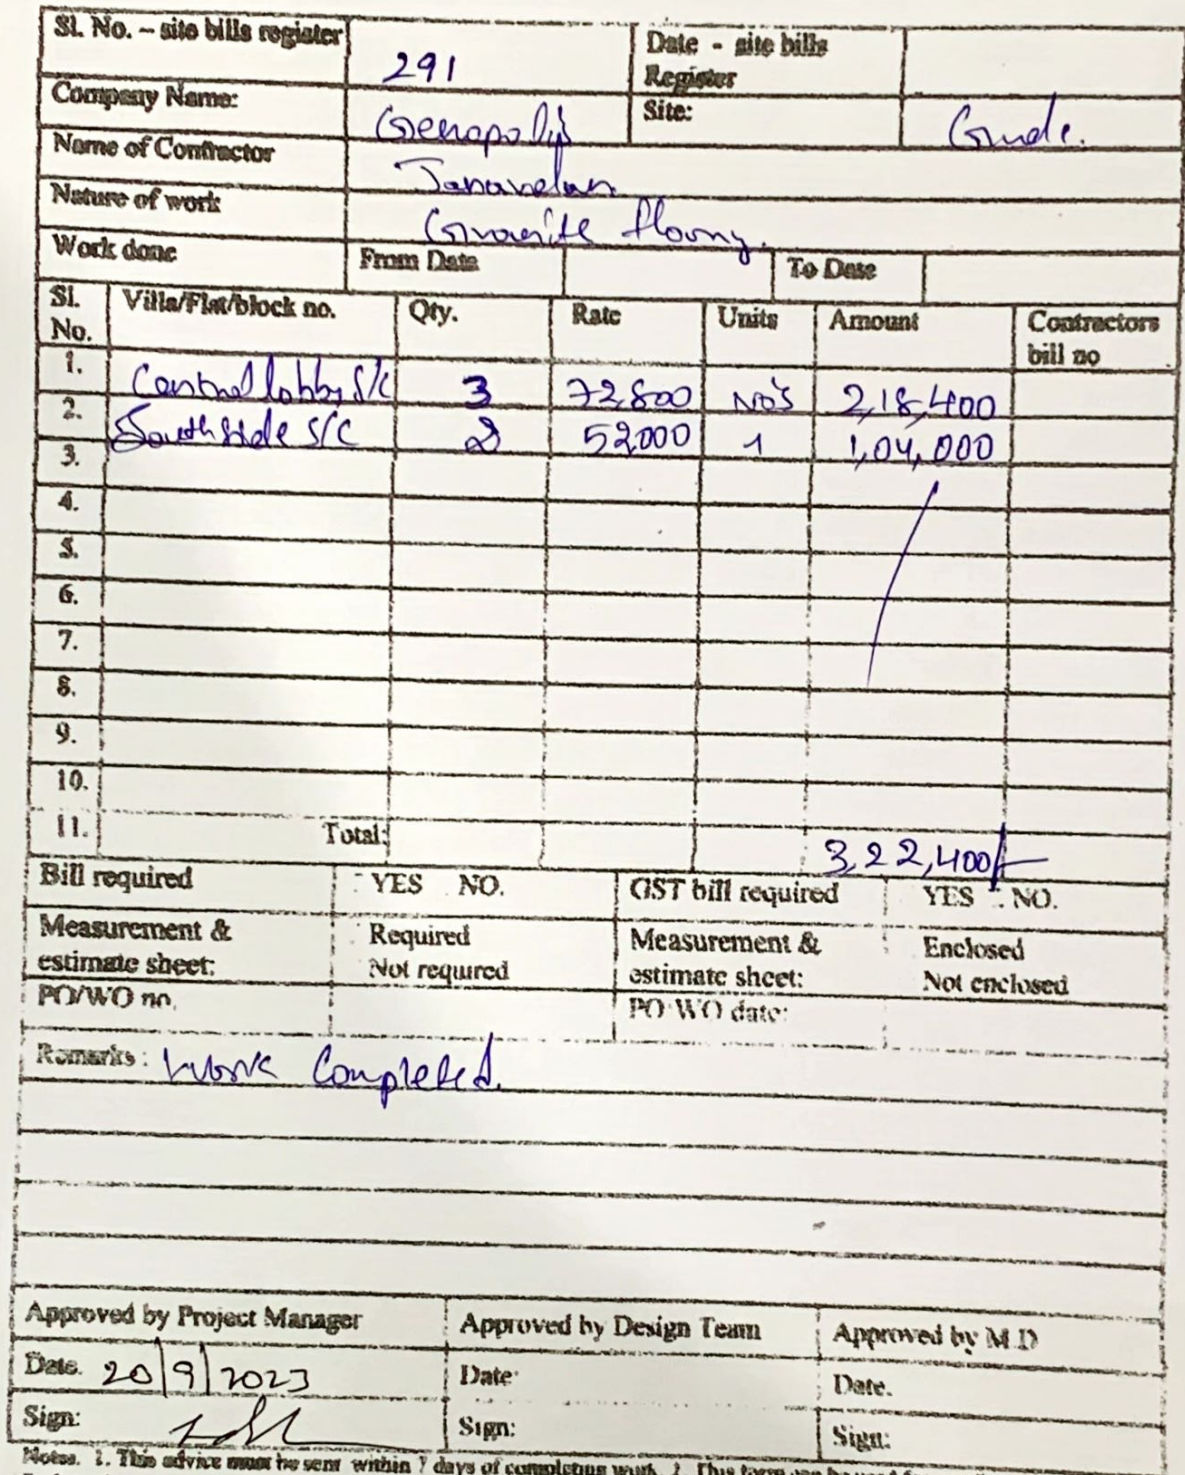 Sl. No. – site bills register 291 Date - site bills Register
Company Name: Genopolis Site: Gmdc.
Name of Contractor Janavelan
Nature of work Granite flooring.
Work done From Date To Date
Sl. No. Villa/Flat/block no. Qty. Rate Units Amount Contractors bill no
1. Central lobby S/C 3 72,800 No's 2,18,400
2. South side S/C 2 52000 1 1,04,000
3.
4.
5.
6.
7.
8.
9.
10.
11. Total: 3,22,400/-
Bill required YES NO. GST bill required YES NO.
Measurement & estimate sheet: Required Not required Measurement & estimate sheet: Enclosed Not enclosed
PO/WO no. PO WO date:
Remarks : Work Completed.
Approved by Project Manager Approved by Design Team Approved by M.D
Date. 20/9/2023 Date Date.
Sign: Sign: Sign:
Notes. 1. This advice must be sent within 7 days of completing work. 2. This form can be used for